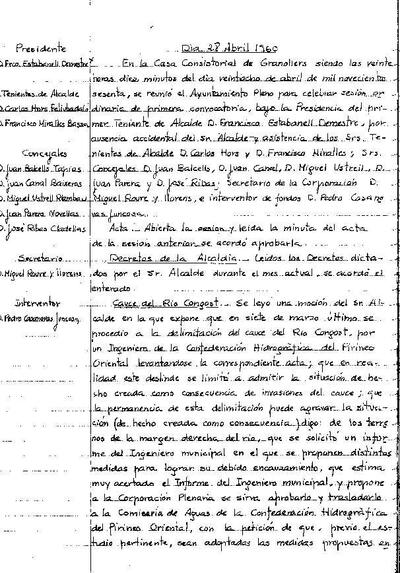 Presidente
D. Frco. Estabanell Demestre
Tenientes de Alcalde
D. Carlos Hors Feliubadaló
D. Francisco Miralles Bassa
Concejales
D. Juan Balcells Tapias
D. Juan Canal
D. Miguel Ustrell
D. Juan Parera Novellas
D. José Ribas
Secretario
D. Miguel Roure y Llorens
Interventor
D. Pedro Casanovas
Dia 28 Abril 1960
En la Casa Consistorial de Granollers siendo las veinte
horas diez minutos del dia veintiocho de abril de mil novecientos
sesenta, se reunió el Ayuntamiento Pleno para celebrar sesión or
dinaria de primera convocatoria, bajo la Presidencia del pri-
mer Teniente de Alcalde D. Francisco Estabanell Demestre, por
ausencia accidental del Sr. Alcalde y asistencia de los Srs. Te-
nientes de Alcalde D. Carlos Hors y D. Francisco Miralles; Srs.
Concejales D. Juan Balcells, D. Juan Canal, D. Miguel Ustrell, D.
Juan Parera y D. José Ribas; Secretario de la Corporación D.
Miguel Roure y Llorens, e interventor de fondos D. Pedro Casano
vas
Acta. Abierta la sesion y leida la minuta del acta
de la sesión anterior se acordó aprobarla.
Decretos de la Alcaldía. Leidos los Decretos dicta-
dos por el Sr. Alcalde durante el mes actual, se acordó el
enterado
Cauce del Rio Congost. Se leyó una moción del Sr. Al-
calde en la que expone que en siete de marzo último se
procedio a la delimitación del cauce del Rio Congost, por
un Ingeniero de la Confederación Hidrográfica del Pirineo
Oriental levantandose la correspondiente acta; que en rea-
lidad este deslinde se limitó a admitir la situación de he-
cho creada como consecuencia de invasiones del cauce; que
la permanencia de esta delimitación puede agravar la situa-
ción (de hecho creada como consecuencia) digo: de los terre
nos de la margen derecha del rio, que se solicitó un infor
me del Ingeniero municipal en el que se proponen distintas
medidas para lograr su debido encauzamiento, que estima
muy acertado el Informe del Ingeniero municipal, y propone
a la Corporación Plenaria se sirva aprobarlo y trasladarlo
a la Comisería de Aguas de la Confederación Hidrográfica
del Pirineo Oriental, con la petición de que, previo el es-
tudio pertinente, sean adoptadas las medidas propuestas en